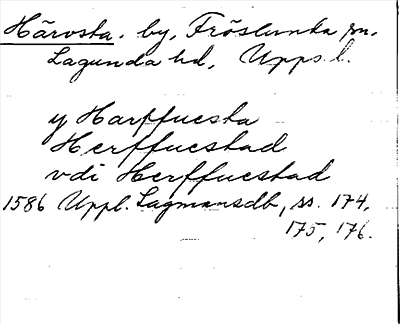 Härvsta. by, Fröslunda sn.
Lagunda hd, Upps. l.
y Harffuesta
Herffuestad
vdi Herffuestad
1586 Uppl. Lagmansdb, ss. 174,
175, 176.